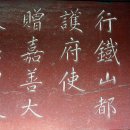 行鐵山都
護府使
贈嘉善大